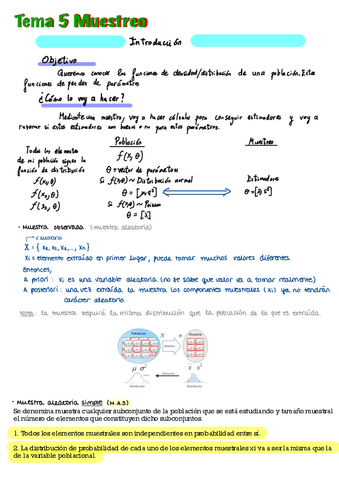 Tema 5 Muestreo
Introducción
Objetivo
Queremos conocer las funciones de densidad/distribución de una población. Esta
funciones dependen de parámetros.
¿Cómo lo voy a hacer?
Mediante una muestra, voy a hacer cálculos para conseguir estimadores y voy a
razonar si estos estimadores son buenos o no para estos parámetros.
Población
Muestreo
Todos los elementos
de mi población siguen la
función de distribución
f(x₁,θ)
f(x₂,θ)
f(x₃,θ)
f(x,θ)
θ = vector de parámetros
Si f(x,θ) ~ Distribución normal
θ = [μ, σ²]
Si f(x,θ) ~ Poisson
θ = [λ]
Estimadores
· Muestra observada (muestra aleatoria)
X = { x₁, x₂, x₃, ..., xₙ}
x₁ = elemento extraído en primer lugar, puede tomar muchos valores diferentes.
Entonces,
A priori : xi es una variable aleatoria (no se sabe que valor va a tomar realmente)
A posteriori : una vez extraída la muestra los componentes muestrales (xi) ya no tendrán
carácter aleatorio.
Nota: la muestra seguirá la misma distribución que la población de la que es extraída.
Población
N
n
Muestra
μ σ²
x̄ s²
· Muestra aleatoria simple (M.A.S)
Se denomina muestra cualquier subconjunto de la población que se está estudiando y tamaño muestral
el número de elementos que constituyen dicho subconjuntos.
1. Todos los elementos muestrales son independientes en probabilidad entre sí.
2. La distribución de probabilidad de cada uno de los elementos muestrales xi va a ser la misma que la
de la variable poblacional.